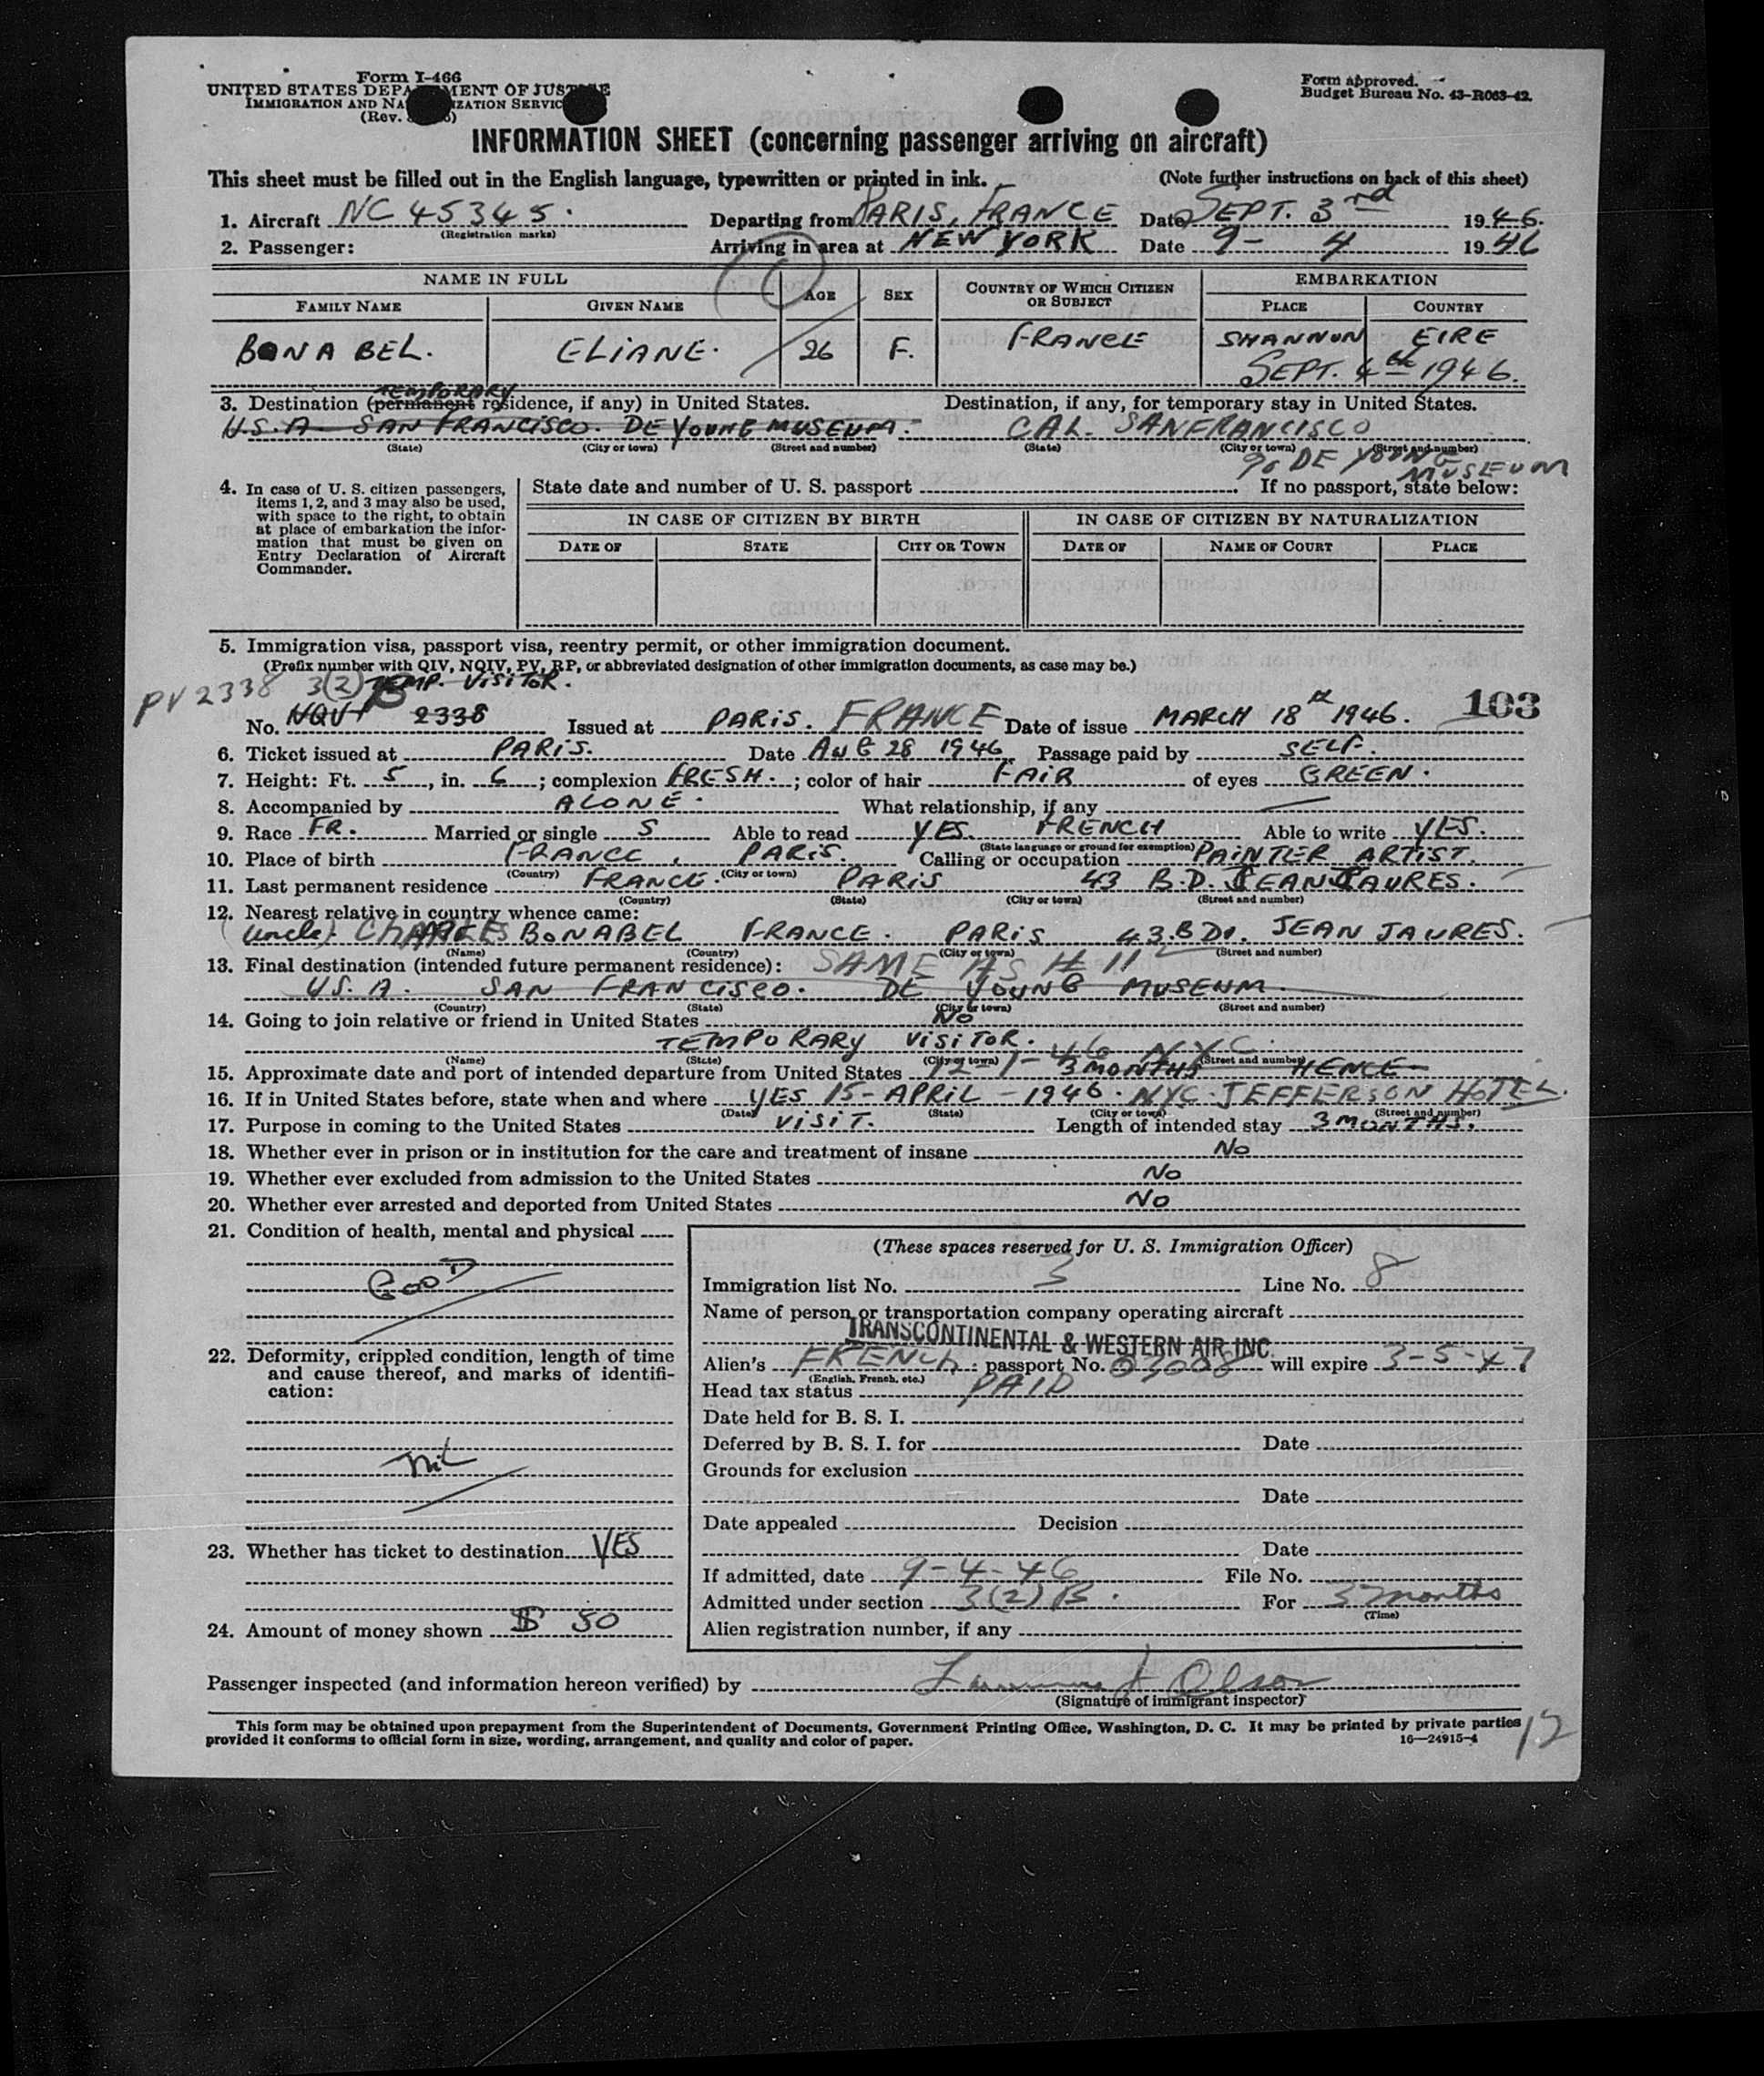 Form I-466
UNITED STATES DEPARTMENT OF JUSTICE
IMMIGRATION AND NATURALIZATION SERVICE
(Rev.
Form approved.
Budget Bureau No. 43-R063-42.
INFORMATION SHEET (concerning passenger arriving on aircraft)
This sheet must be filled out in the English language, typewritten or printed in ink. (Note further instructions on back of this sheet)
1. Aircraft NC 45345. Departing from PARIS, FRANCE Date SEPT. 3rd 1946.
(Registration marks)
2. Passenger: Arriving in area at NEW YORK Date 9- 4 1946
NAME IN FULL AGE SEX COUNTRY OF WHICH CITIZEN OR SUBJECT EMBARKATION
FAMILY NAME GIVEN NAME PLACE COUNTRY
BONABEL. ELIANE. 26 F. FRANCE SHANNON EIRE
SEPT. 4th 1946.
TEMPORARY
3. Destination (permanent residence, if any) in United States. Destination, if any, for temporary stay in United States.
U.S.A. SAN FRANCISCO. DE YOUNG MUSEUM. CAL. SANFRANCISCO
(State) (City or town) (Street and number) (State) (City or town) (Street and number)
% DE YOUNG MUSEUM
4. In case of U. S. citizen passengers, items 1, 2, and 3 may also be used, with space to the right, to obtain at place of embarkation the information that must be given on Entry Declaration of Aircraft Commander.
State date and number of U. S. passport . If no passport, state below:
IN CASE OF CITIZEN BY BIRTH IN CASE OF CITIZEN BY NATURALIZATION
DATE OF STATE CITY OR TOWN DATE OF NAME OF COURT PLACE
5. Immigration visa, passport visa, reentry permit, or other immigration document.
(Prefix number with QIV, NQIV, PV, RP, or abbreviated designation of other immigration documents, as case may be.)
PV 2338 3(2)B TEMP. VISITOR.
No. NQVI 2338 Issued at PARIS. FRANCE Date of issue MARCH 18 1946. 103
6. Ticket issued at PARIS. Date AUG 28 1946 Passage paid by SELF.
7. Height: Ft. 5, in. 6; complexion FRESH.; color of hair FAIR of eyes GREEN.
8. Accompanied by ALONE. What relationship, if any
9. Race FR. Married or single S Able to read YES. FRENCH Able to write YES.
(State language or ground for exemption)
10. Place of birth FRANCE, PARIS. Calling or occupation PAINTER ARTIST.
(Country) (City or town)
11. Last permanent residence FRANCE. PARIS 43 B.D. JEAN JAURES.
(Country) (State) (City or town) (Street and number)
12. Nearest relative in country whence came:
(uncle) CHARLES BONABEL FRANCE. PARIS 43. BD. JEAN JAURES.
(Name) (Country) (City or town) (Street and number)
13. Final destination (intended future permanent residence): SAME AS # 11
U.S.A. SAN FRANCISCO. DE YOUNG MUSEUM.
(Country) (State) (City or town) (Street and number)
14. Going to join relative or friend in United States NO
TEMPORARY VISITOR.
(Name) (State) (City or town) (Street and number)
15. Approximate date and port of intended departure from United States 12-1-46 NYC. 3 MONTHS HENCE
16. If in United States before, state when and where YES 15- APRIL - 1946. NYC. JEFFERSON HOTEL.
(Date) (State) (City or town) (Street and number)
17. Purpose in coming to the United States VISIT. Length of intended stay 3 MONTHS.
18. Whether ever in prison or in institution for the care and treatment of insane No
19. Whether ever excluded from admission to the United States No
20. Whether ever arrested and deported from United States No
21. Condition of health, mental and physical
GOOD
22. Deformity, crippled condition, length of time and cause thereof, and marks of identification:
nil
23. Whether has ticket to destination YES
24. Amount of money shown $ 50
(These spaces reserved for U. S. Immigration Officer)
Immigration list No. 3 Line No. 8
Name of person or transportation company operating aircraft
TRANSCONTINENTAL & WESTERN AIR INC.
Alien's FRENCH passport No. 03008 will expire 3-5-47
(English, French, etc.)
Head tax status PAID
Date held for B. S. I.
Deferred by B. S. I. for Date
Grounds for exclusion
Date
Date appealed Decision
Date
If admitted, date 9-4-46 File No.
Admitted under section 3(2)B. For 3 months
(Time)
Alien registration number, if any
Passenger inspected (and information hereon verified) by Olson
(Signature of immigrant inspector)
This form may be obtained upon prepayment from the Superintendent of Documents, Government Printing Office, Washington, D. C. It may be printed by private parties
provided it conforms to official form in size, wording, arrangement, and quality and color of paper. 16—24915-4
12